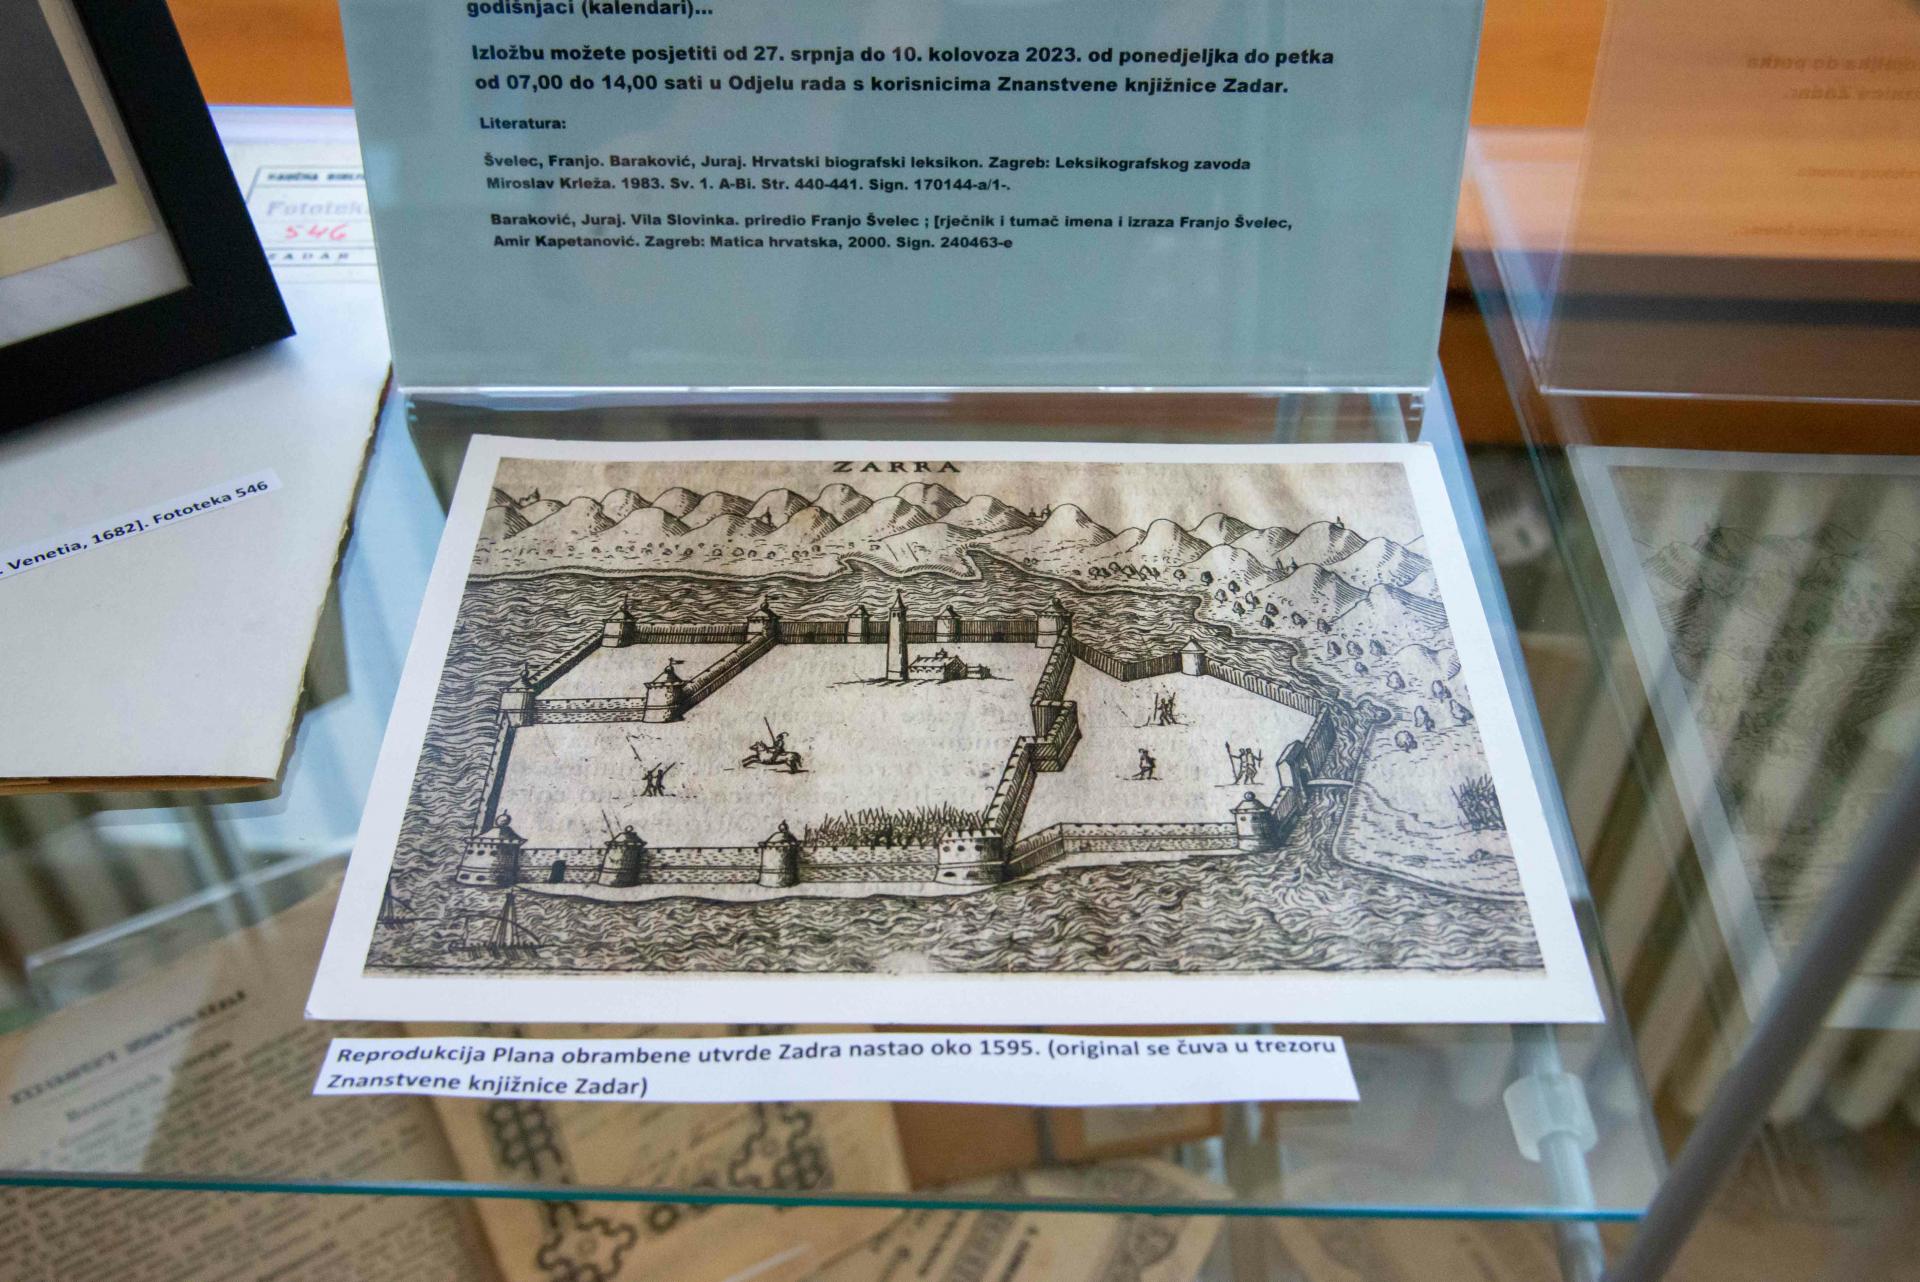 godišnjaci (kalendari)...
Izložbu možete posjetiti od 27. srpnja do 10. kolovoza 2023. od ponedjeljka do petka
od 07,00 do 14,00 sati u Odjelu rada s korisnicima Znanstvene knjižnice Zadar.
Literatura:
Švelec, Franjo. Baraković, Juraj. Hrvatski biografski leksikon. Zagreb: Leksikografskog zavoda
Miroslav Krleža. 1983. Sv. 1. A-Bi. Str. 440-441. Sign. 170144-a/1-.
Baraković, Juraj. Vila Slovinka. priredio Franjo Švelec ; [rječnik i tumač imena i izraza Franjo Švelec,
Amir Kapetanović. Zagreb: Matica hrvatska, 2000. Sign. 240463-e
Fototek
546
ZADAR
Venetia, 1682]. Fototeka 546
ZARRA
Reprodukcija Plana obrambene utvrde Zadra nastao oko 1595. (original se čuva u trezoru
Znanstvene knjižnice Zadar)